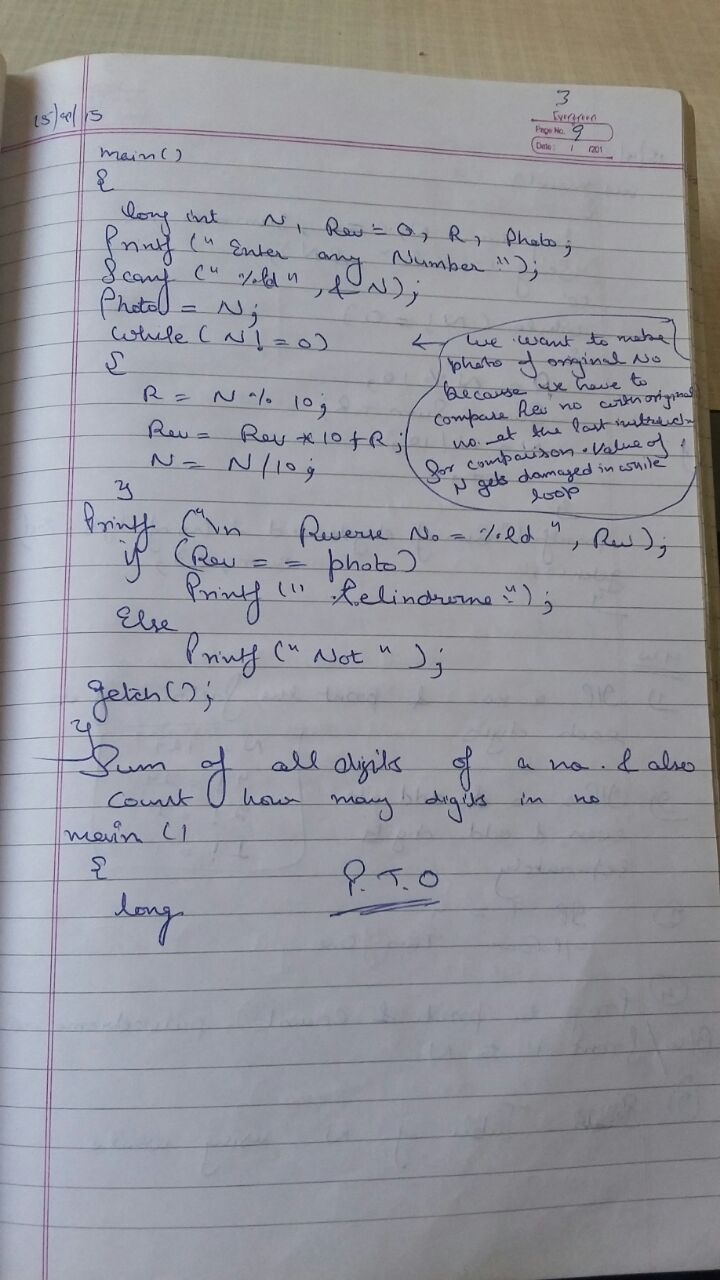 3
Evergreen
Page No. 9
Date: / /201
main()
{
long int N, Rev=0, R, Photo;
Printf (" Enter any Number:");
Scanf (" %ld", & N);
Photo = N;
while (N!=0)
{
R = N % 10;
Rev = Rev * 10 + R;
N = N/10;
}
← we want to make
photo of original No
because we have to
compare Rev no with original
no. at the last instruction
for comparison. Value of
N gets damaged in while
loop
Printf ("\n Reverse No = %ld", Rev);
if (Rev == photo)
Printf (" Pelindrome:");
Else
Printf (" Not ");
getch();
}
Sum of all digits of a no. & also
count how many digits in no
main ()
{
long
P.T.O